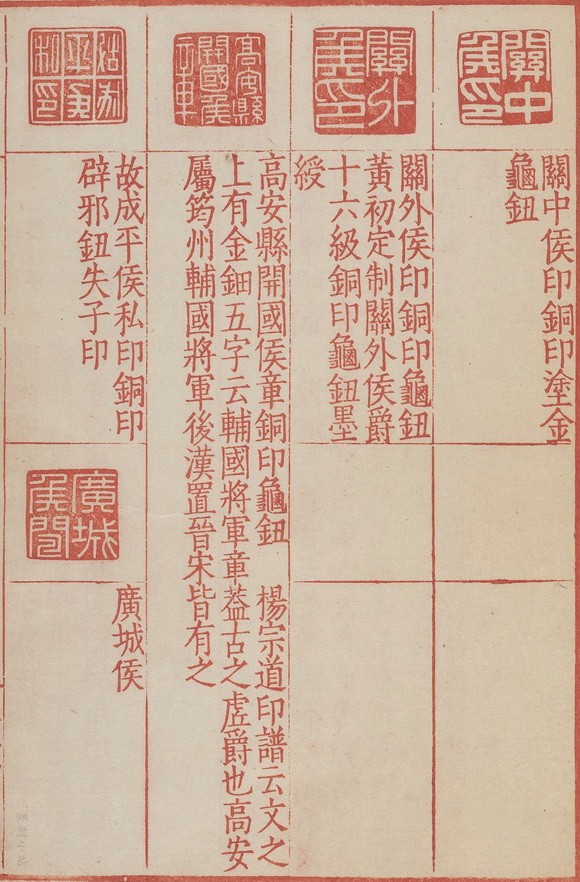 關中
侯印
關中侯印銅印塗金
龜鈕
關外
侯印
關外侯印銅印龜鈕
黃初定制關外侯爵
十六級銅印龜鈕墨
綬
高安縣
開國侯
高安縣開國侯章銅印龜鈕 楊宗道印譜云文之
上有金鈿五字云輔國將軍章葢古之虛爵也高安
屬筠州輔國將軍後漢置晉宋皆有之
故成
平侯
私印
故成平侯私印銅印
辟邪鈕失子印
廣城
侯
廣城侯